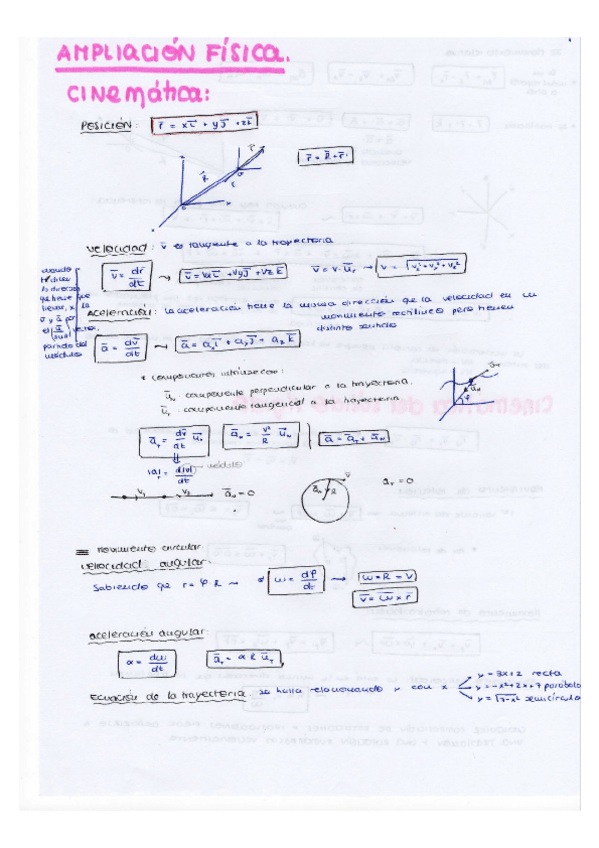 AMPLIACIÓN FÍSICA.
CINEMÁTICA:
POSICIÓN: r̄ = x ī + y j̄ + z k̄
r̄ = R̄ + r̄'
Velocidad: v̄ es tangente a la trayectoria
v̄ = dr̄/dt → v̄ = Vx ī + Vy j̄ + Vz k̄ v̄ = v · ū_T → v = √(v_x² + v_y² + v_z²)
Aceleración: la aceleración tiene la misma dirección que la velocidad en un
movimiento rectilíneo pero tienen
distinto sentido
ā = dv̄/dt → ā = a_x ī + a_y j̄ + a_z k̄
* componentes intrínsecas:
ū_N. componente perpendicular a la trayectoria.
ū_T. componente tangencial a la trayectoria
ā_T = dv/dt ū_T ā_N = v²/R ū_N ā = ā_T + ā_N
|a|_T = d|v|/dt → módulo
V₁ V₂ ā_N = 0 ā_N R v a_T = 0
Movimiento circular
velocidad angular:
Sabiendo que r = φ R → ω = dφ/dt → ω · R = V
v̄ = ω̄ × r̄
aceleración angular
α = dω/dt ā_T = α R ū_T
Ecuación de la trayectoria. se halla relacionando y con x
y = 3x + 2 recta
y = -x² + 2x + 7 parábola
y = √(7 - x²) semicírculo